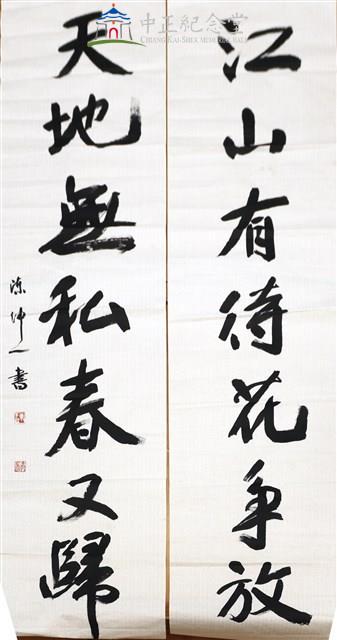 中正紀念堂
CHIANG KAI-SHEK MEMORIAL HALL
江山有待花爭放
天地無私春又歸
陳仲一書